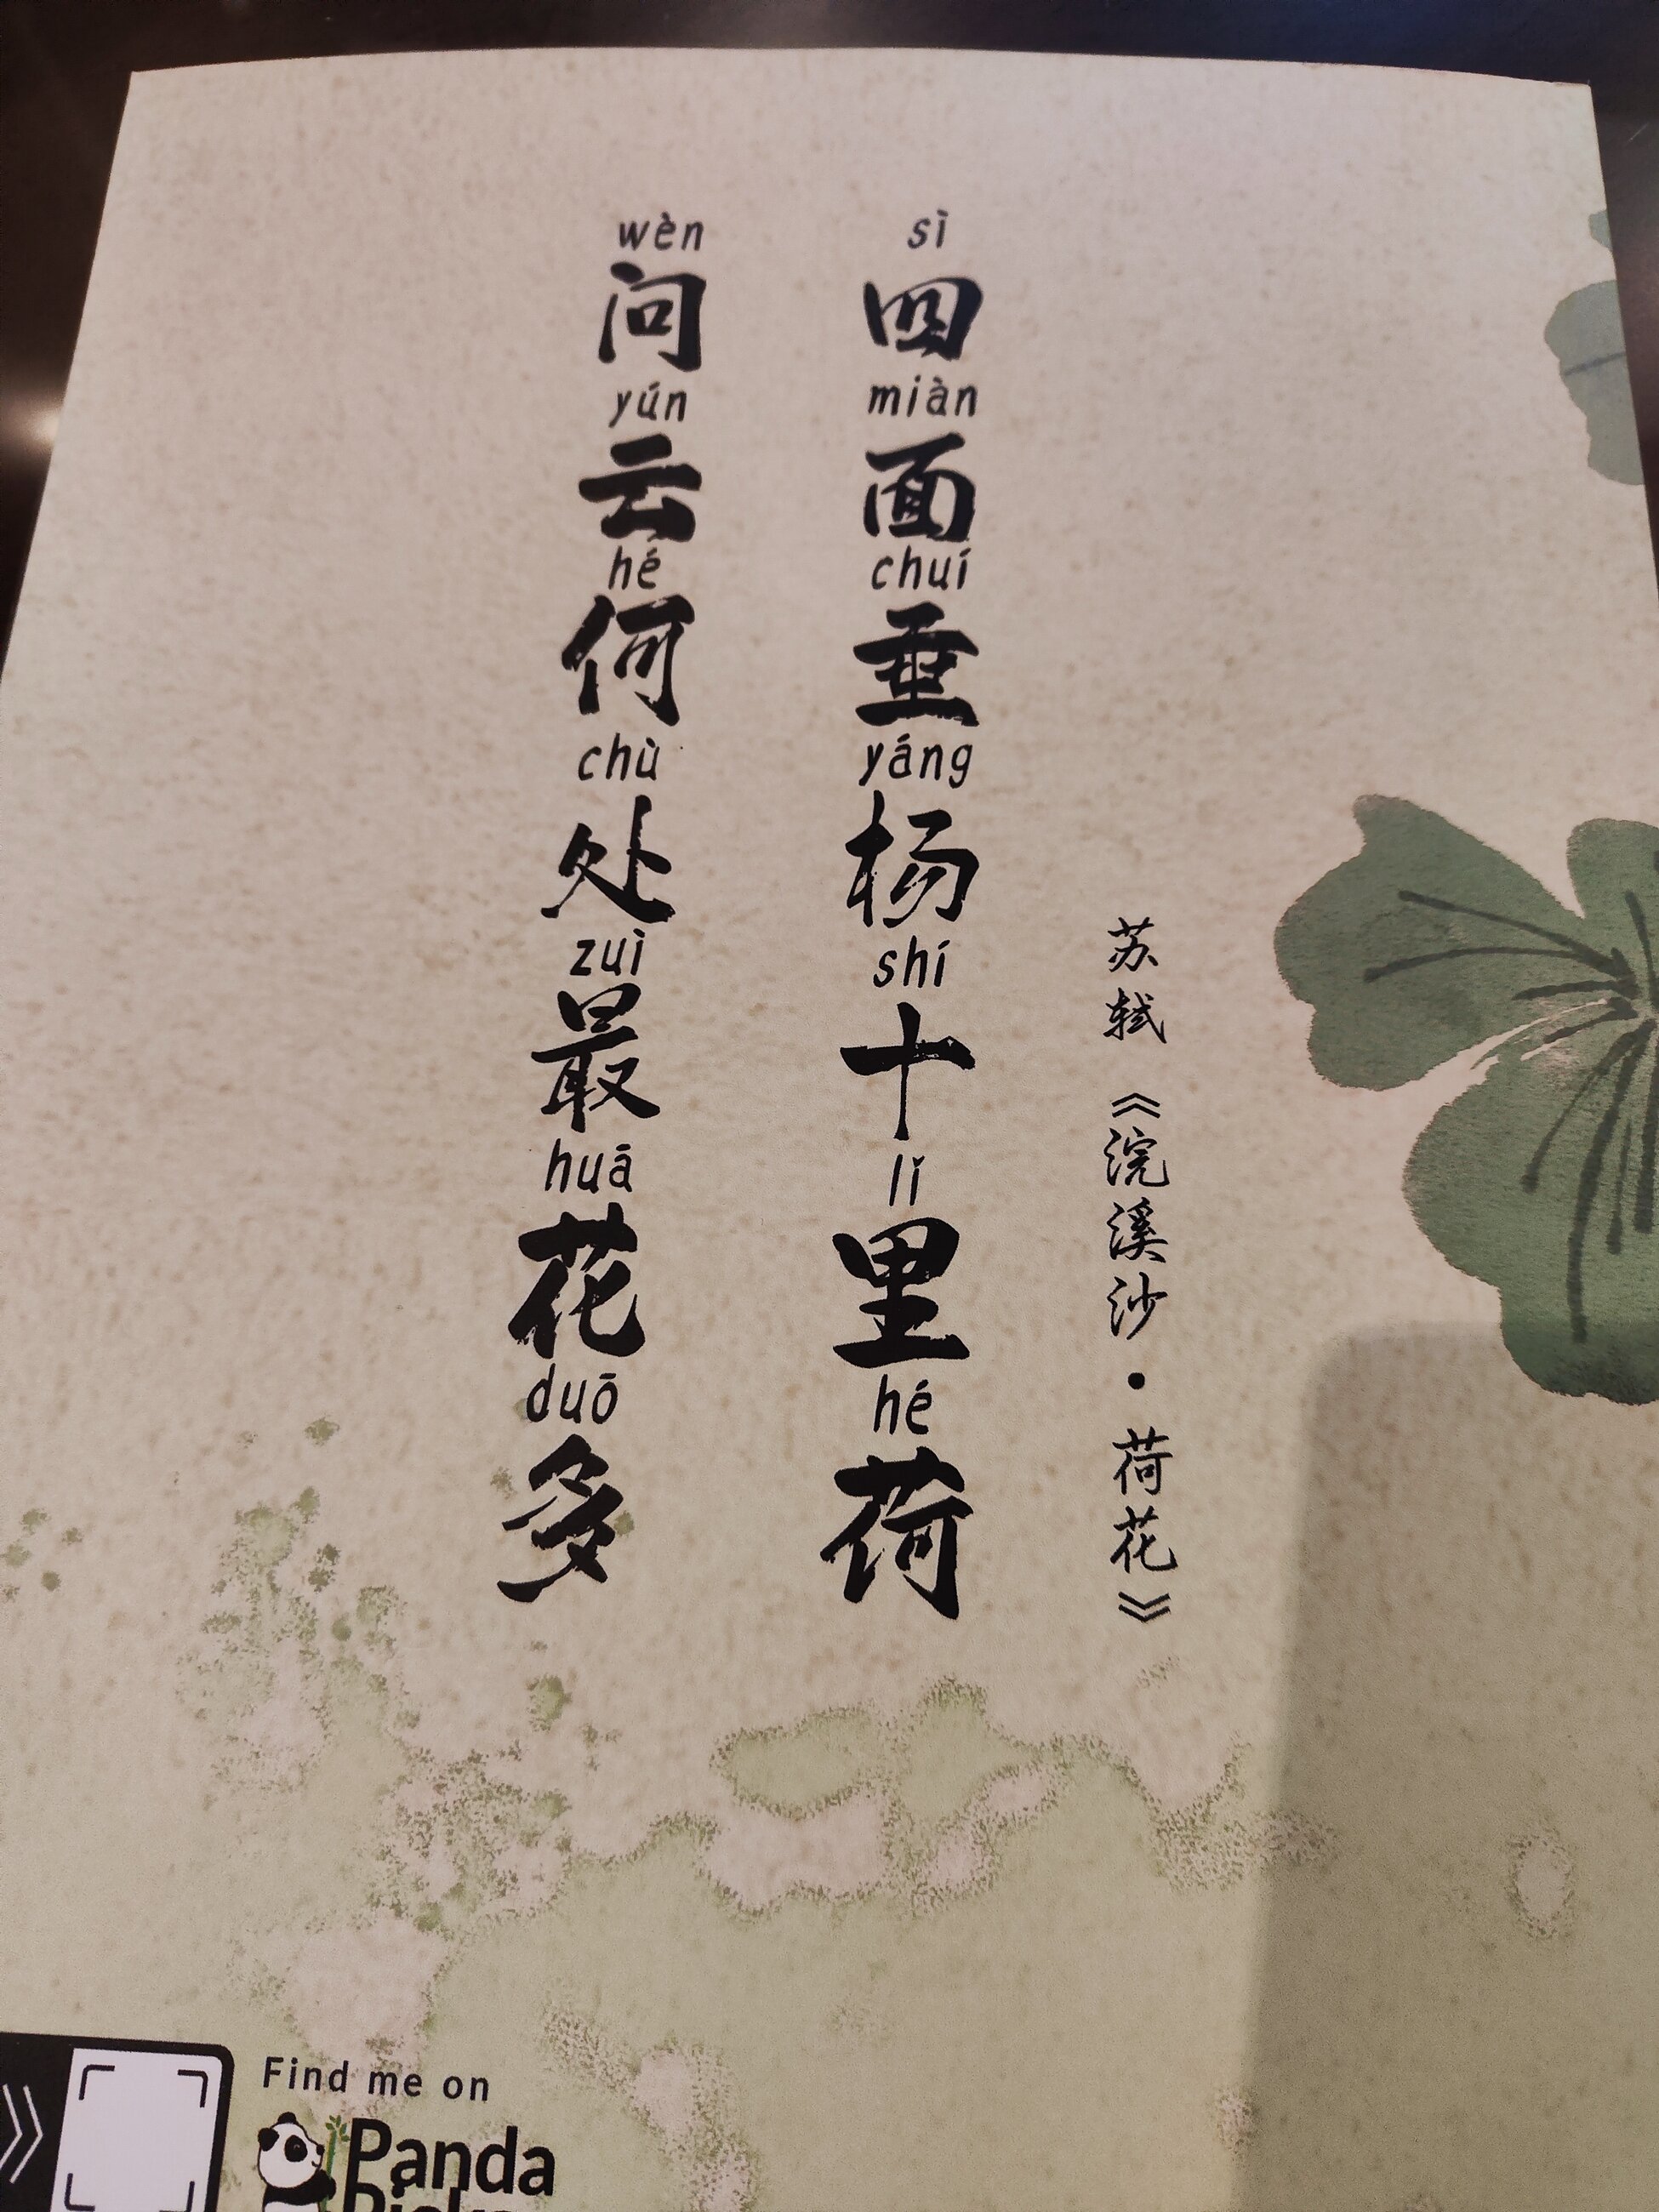 苏轼《浣溪沙·荷花》
sì miàn chuí yáng shí lǐ hé
四面垂杨十里荷
wèn yún hé chù zuì huā duō
问云何处最花多
Find me on
Panda